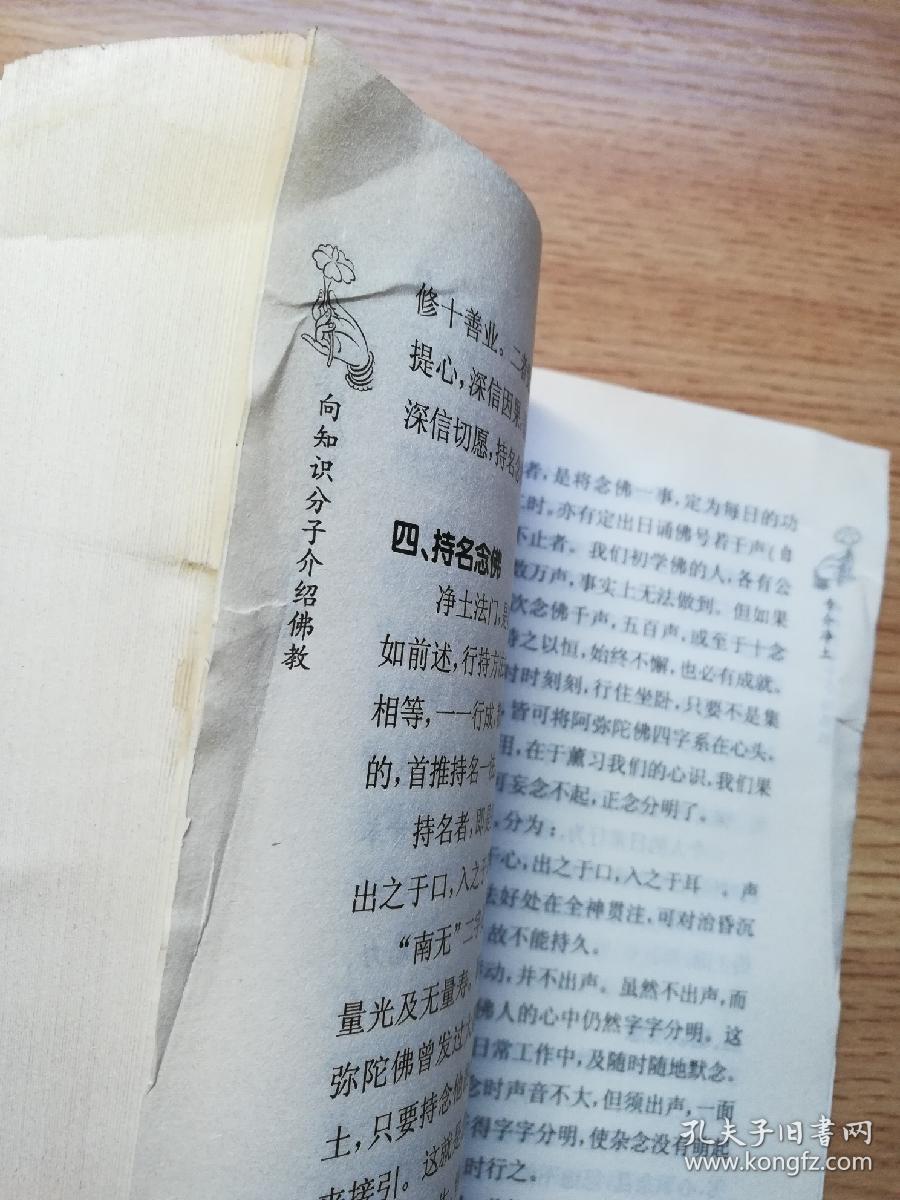 向知识分子介绍佛教
修十善业。二者
提心，深信因果
深信切愿，持名念
四、持名念佛
净土法门，是
如前述，行持方法
相等，一一行成
的，首推持名一法
持名者，即是
出之于口，入之于
“南无”二字
量光及无量寿
弥陀佛曾发过大
土，只要持念他
来接引。这就是
者，是将念佛一事，定为每日的功
二时。亦有定出日诵佛号若干声（自
不止者。我们初学佛的人，各有公
数万声，事实上无法做到。但如果
次念佛千声，五百声，或至于十念
持之以恒，始终不懈，也必有成就。
时时刻刻，行住坐卧，只要不是集
皆可将阿弥陀佛四字系在心头。
用，在于薰习我们的心识，我们果
可妄念不起，正念分明了。
，分为：
于心，出之于口，入之于耳 。声
法好处在全神贯注，可对治昏沉
故不能持久。
动，并不出声。虽然不出声，而
佛人的心中仍然字字分明。这
日常工作中，及随时随地默念。
念时声音不大，但须出声，一面
得字字分明，使杂念没有萌起
时行之。
孔夫子旧书网
www.kongfz.com